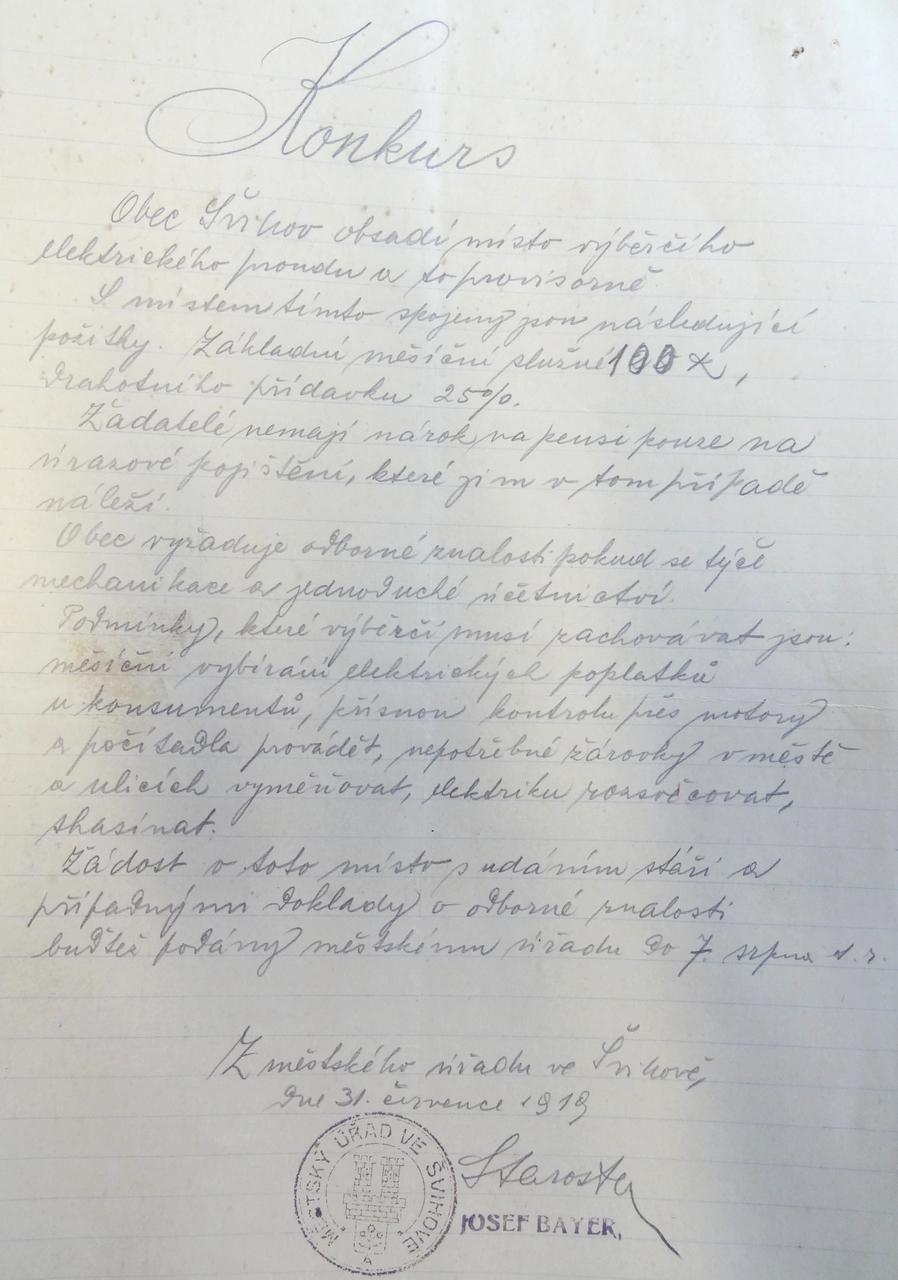 Konkurs
Obec Švihov obsadí místo výběrčího
elektrického proudu a to provisorně
S místem tímto spojeny jsou následující
požitky. Základní měsíční služné 100 K,
drahotního přídavku 25%.
Žadatelé nemají nárok na pensi pouze na
úrazové pojištění, které jim v tom případě
náleží.
Obec vyžaduje odborné znalosti pokud se týče
mechanikace a jednoduché účetnictví.
Podmínky, které výběrčí musí zachovávat jsou:
měsíční vybírání elektrických poplatků
u konsumentů, přísnou kontrolu přes motory
a počítadla provádět, nepotřebné žárovky v městě
a ulicích vyměňovat, elektriku rozsvěcovat,
shasínat.
Žádost o toto místo s udáním stáří a
případnými doklady o odborné znalosti
buďtež podány městskému úřadu do 7. srpna t. r.
Z městského úřadu ve Švihově,
dne 31. července 1919
Starosta
MĚSTSKÝ ÚŘAD VE ŠVIHOVĚ
JOSEF BAYER,